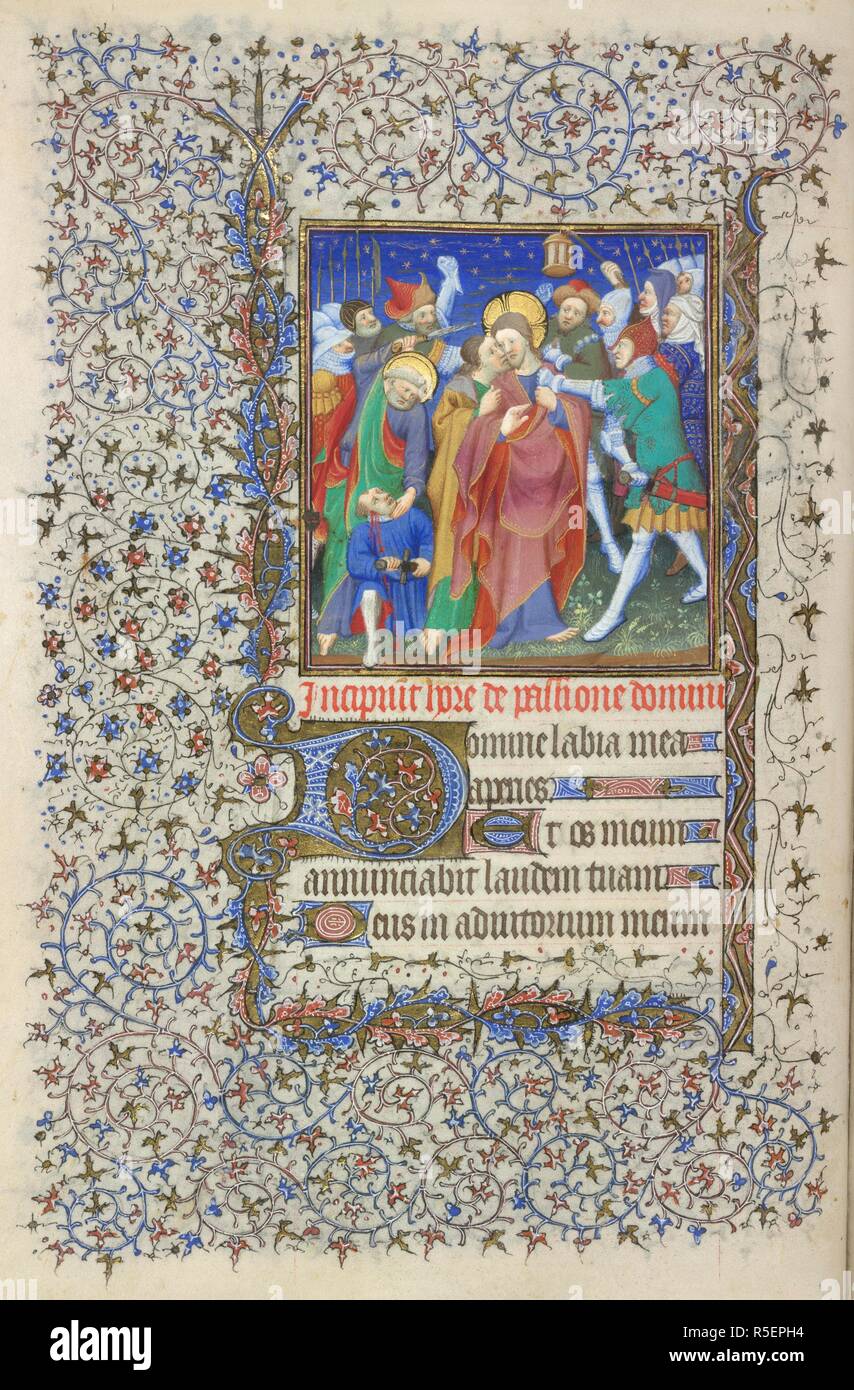 Incipiunt hore de passione domini
Domine labia mea
aperies.
Et os meum
annunciabit laudem tuam
Deus in adiutorium meum
alamy
alamy
Image ID: R5EPH4
www.alamy.com